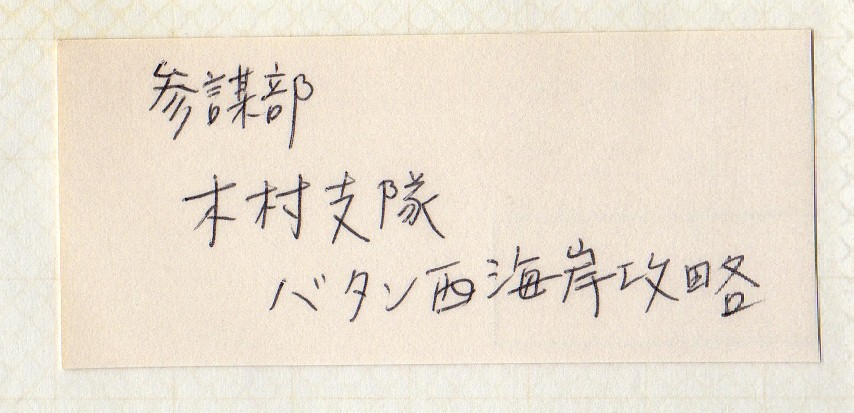 参謀部
木村支隊
バタン西海岸攻略